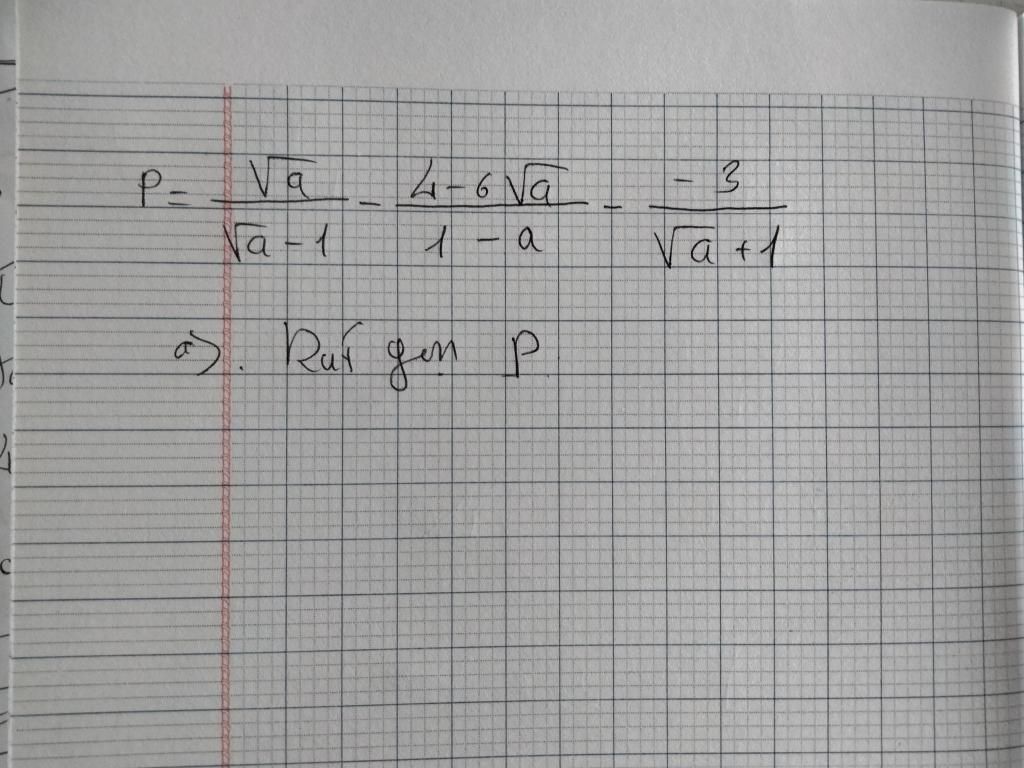 P = \frac{\sqrt{a}}{\sqrt{a} - 1} - \frac{4 - 6\sqrt{a}}{1 - a} - \frac{-3}{\sqrt{a} + 1}
a). Rút gọn P